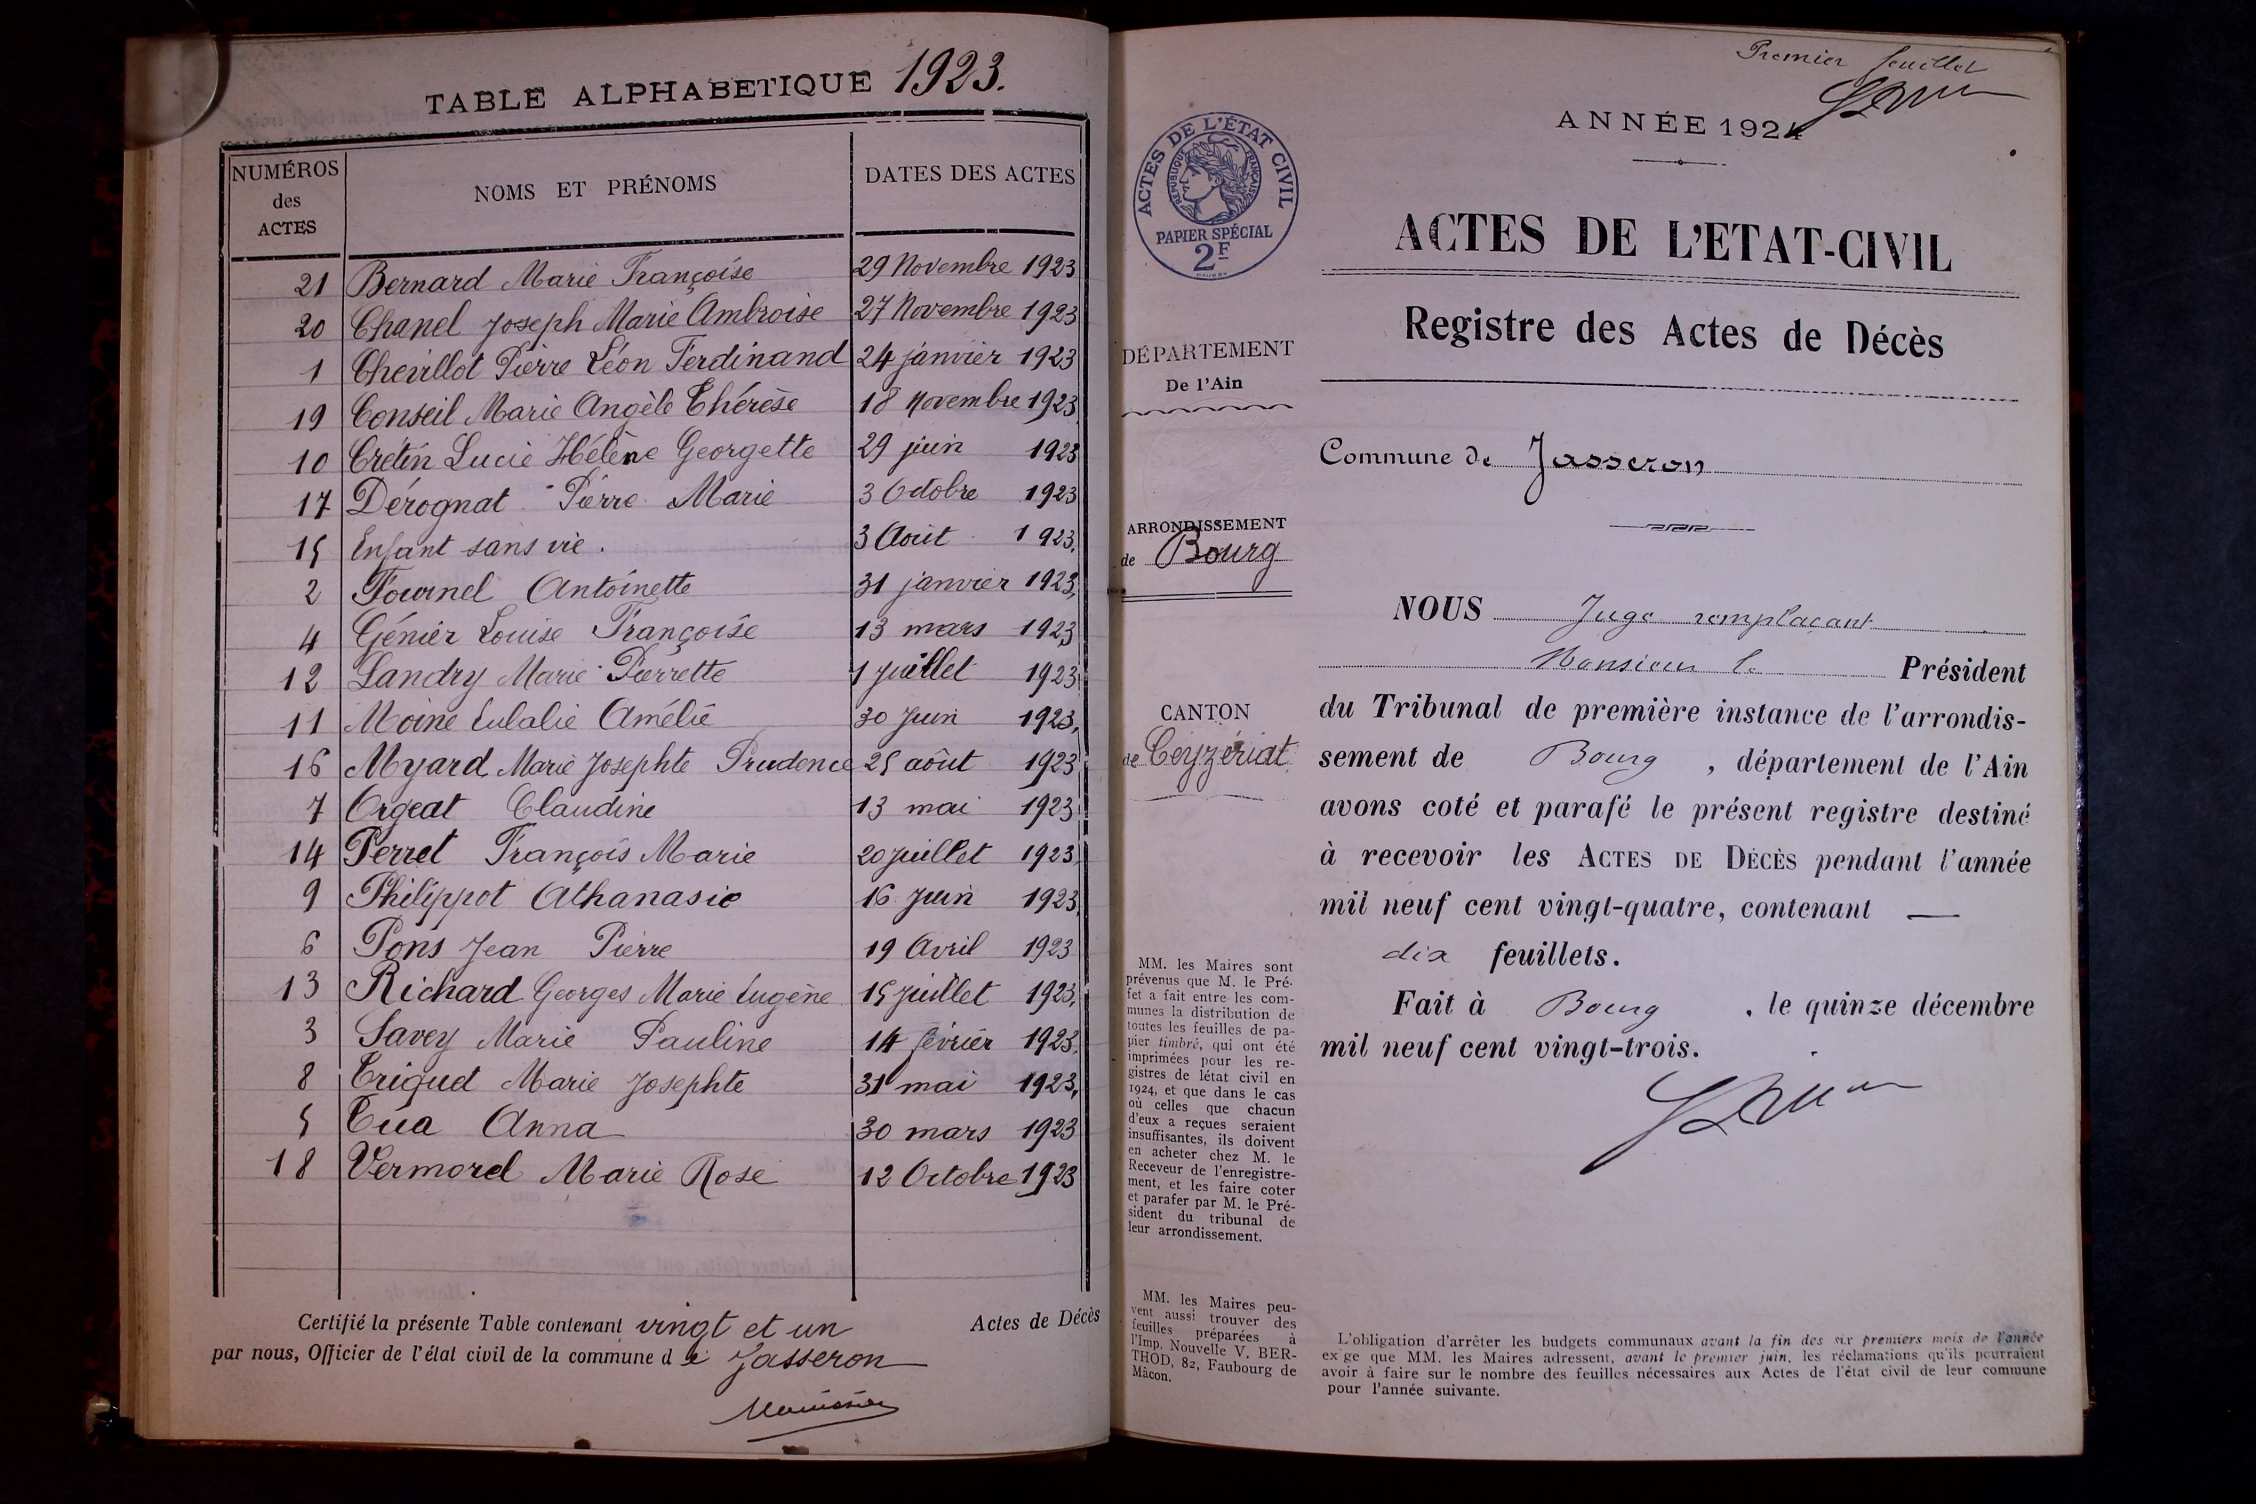 TABLE ALPHABETIQUE 1923.
NUMÉROS des ACTES
NOMS ET PRÉNOMS
DATES DES ACTES
21 Bernard Marie Françoise 29 Novembre 1923
20 Chanel Joseph Marie Ambroise 27 Novembre 1923
1 Chevillot Pierre Léon Ferdinand 24 janvier 1923
19 Conseil Marie Angèle Thérèse 18 Novembre 1923
10 Crétin Lucie Hélène Georgette 29 juin 1923
17 Dérognat Pierre Marie 3 Octobre 1923
15 Enfant sans vie. 3 Août 1923.
2 Fournel Antoinette 31 janvier 1923,
4 Génier Louise Françoise 13 mars 1923
12 Landry Marie Pierrette 1 juillet 1923
11 Moine Eulalie Amélie 30 Juin 1923,
16 Myard Marie Josephte Prudence 25 août 1923
7 Orgeat Claudine 13 mai 1923
14 Perret François Marie 20 juillet 1923
9 Philippot Athanasie 16 Juin 1923
6 Pons Jean Pierre 19 Avril 1923
13 Richard Georges Marie Eugène 15 juillet 1923,
3 Savey Marie Pauline 14 février 1923.
8 Trigud Marie Josephte 31 mai 1923,
5 Tua Anna 30 mars 1923
18 Vermorel Marie Rose 12 Octobre 1923
Certifié la présente Table contenant vingt et un Actes de Décès
par nous, Officier de l'état civil de la commune de Jasseron
Premier feuillet
ANNÉE 1924
ACTES DE L'ÉTAT CIVIL
RÉPUBLIQUE FRANÇAISE
PAPIER SPÉCIAL
2F
ACTES DE L'ETAT-CIVIL
Registre des Actes de Décès
DÉPARTEMENT
De l'Ain
Commune de Jasseron
ARRONDISSEMENT
de Bourg
CANTON
de Ceyzériat
NOUS Juge remplaçant
Monsieur le Président
du Tribunal de première instance de l'arrondis-
sement de Bourg, département de l'Ain
avons coté et parafé le présent registre destiné
à recevoir les ACTES DE DÉCÈS pendant l'année
mil neuf cent vingt-quatre, contenant —
dix feuillets.
Fait à Bourg, le quinze décembre
mil neuf cent vingt-trois.
MM. les Maires sont
prévenus que M. le Pré-
fet a fait entre les com-
munes la distribution de
toutes les feuilles de pa-
pier timbré, qui ont été
imprimées pour les re-
gistres de létat civil en
1924, et que dans le cas
où celles que chacun
d'eux a reçues seraient
insuffisantes, ils doivent
en acheter chez M. le
Receveur de l'enregistre-
ment, et les faire coter
et parafer par M. le Pré-
sident du tribunal de
leur arrondissement.
MM. les Maires peu-
vent aussi trouver des
feuilles préparées à
l'Imp. Nouvelle V. BER-
THOD, 82, Faubourg de
Mâcon.
L'obligation d'arrêter les budgets communaux avant la fin des six premiers mois de l'année
exige que MM. les Maires adressent, avant le premier juin, les réclamations qu'ils pourraient
avoir à faire sur le nombre des feuilles nécessaires aux Actes de l'état civil de leur commune
pour l'année suivante.